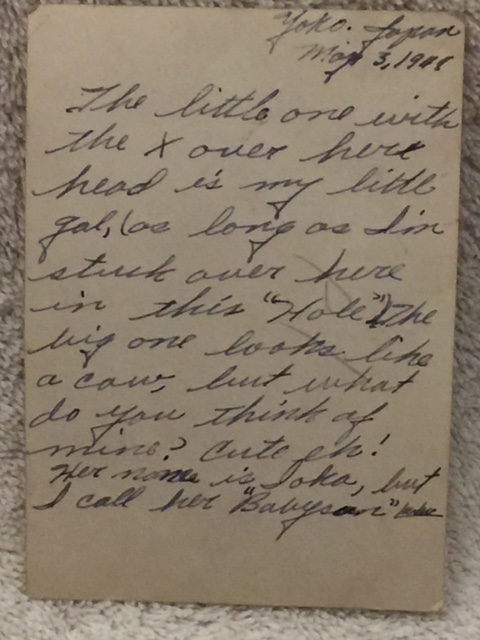 Yoko. Japan
May 3, 194
The little one with
the X over here
head is my little
gal, (as long as I'm
stuck over here
in this "Hole") The
big one looks like
a cow, but what
do you think of
mine? Cute eh!
Her name is , but
I call her "Babysan"